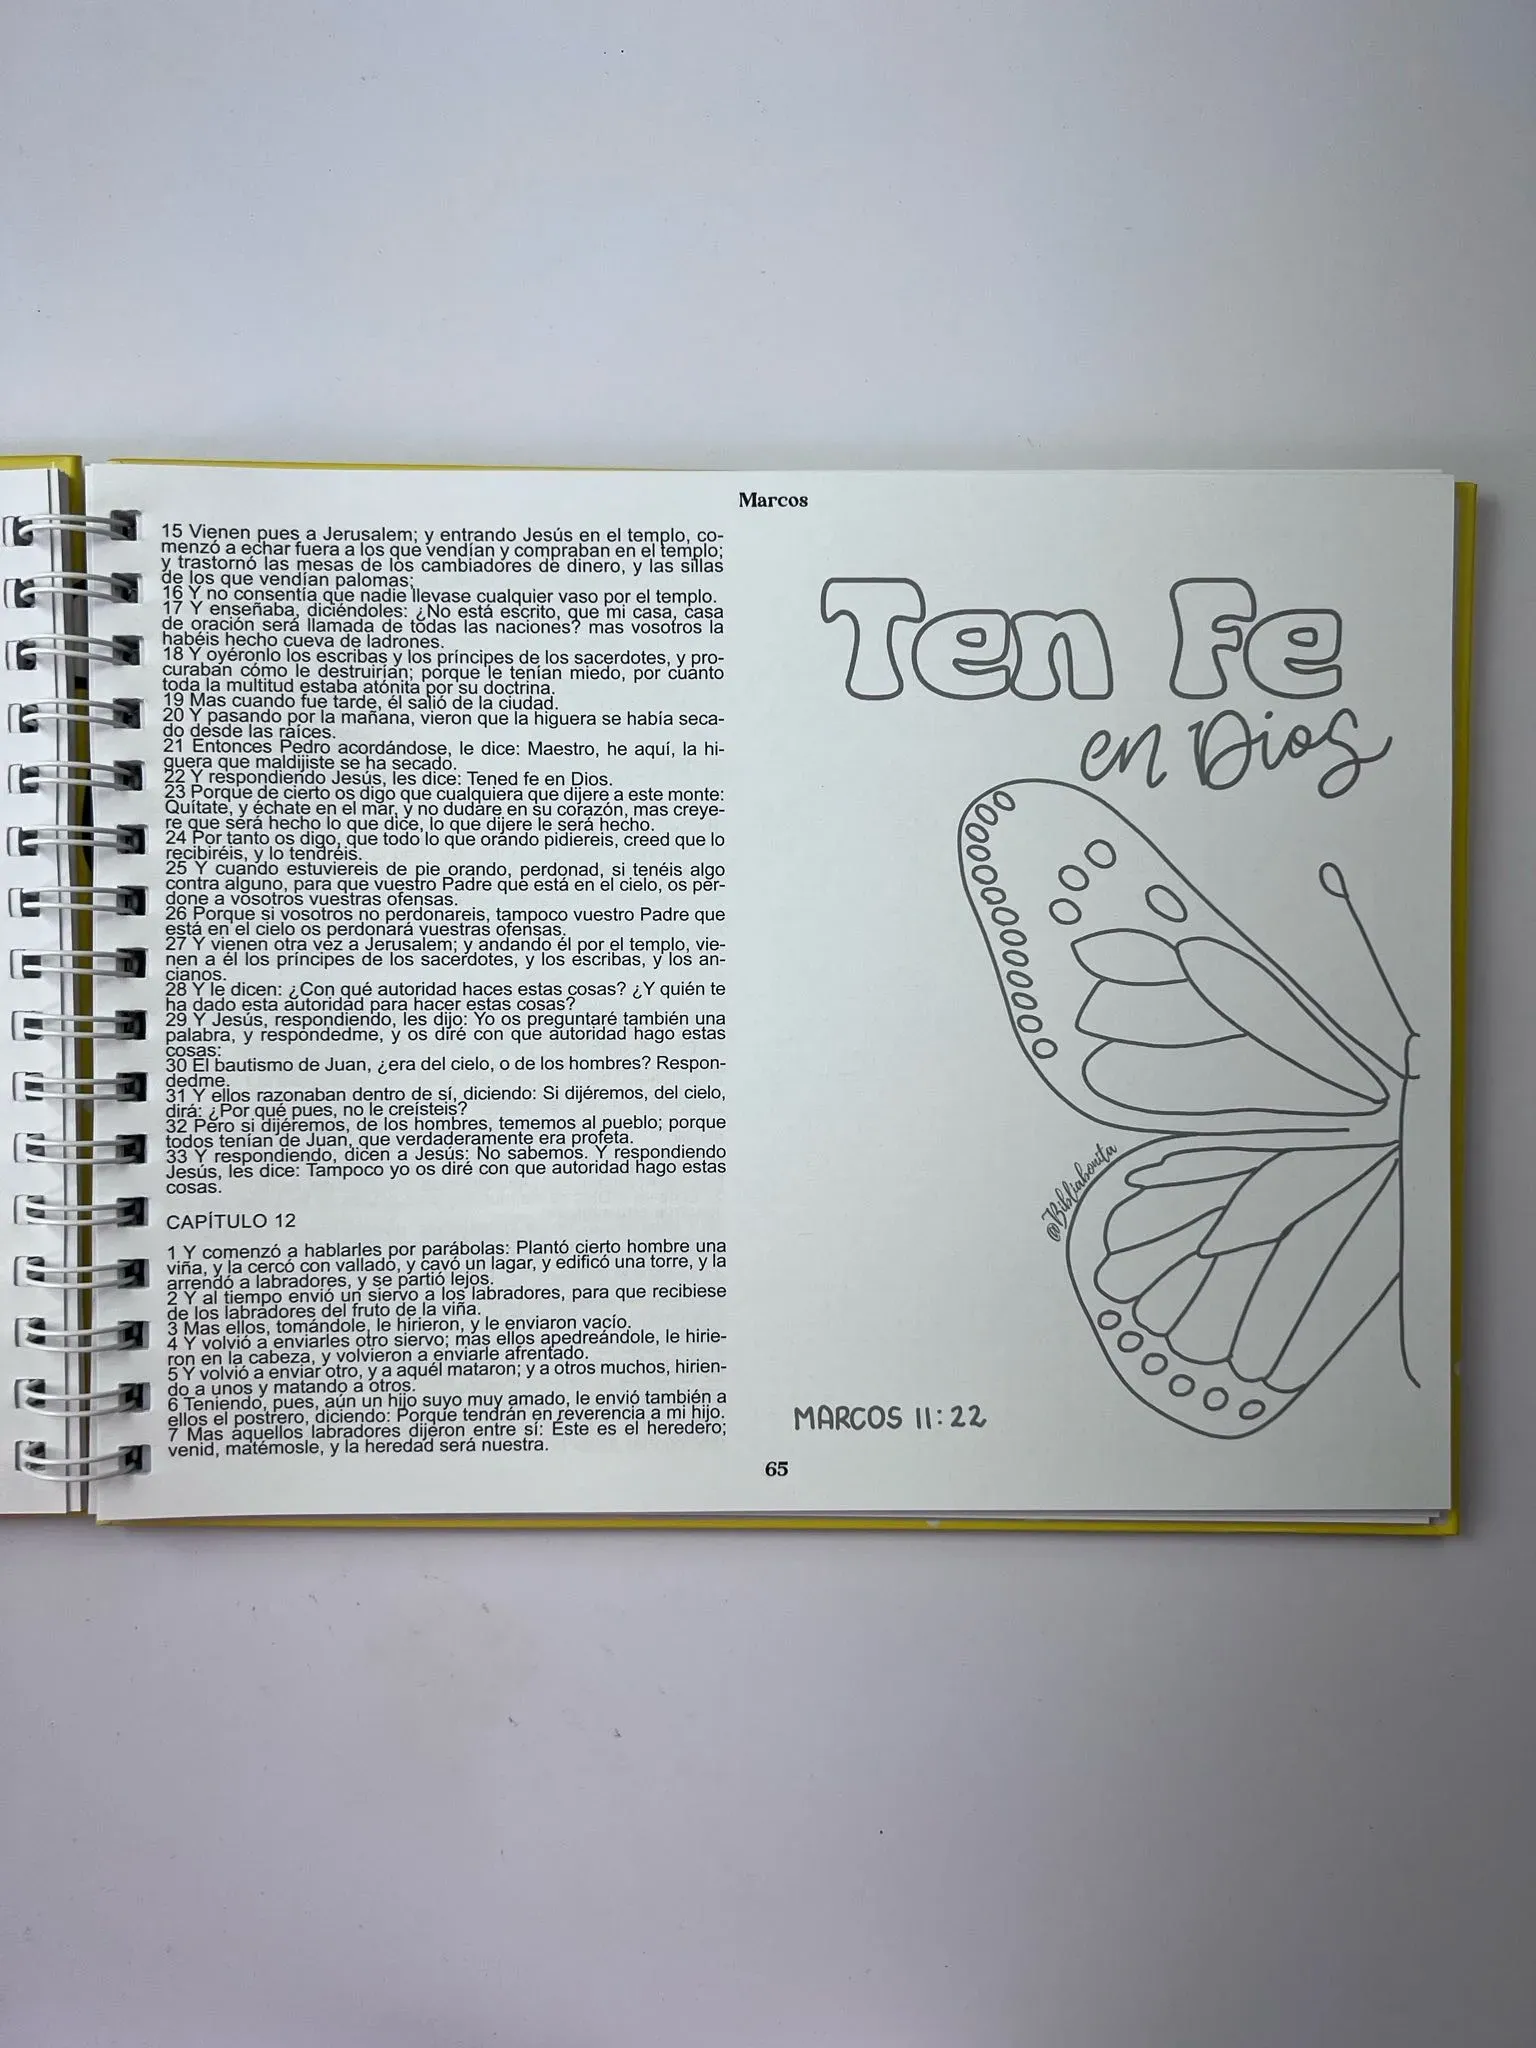 Marcos
15 Vienen pues a Jerusalem; y entrando Jesús en el templo, co-
menzó a echar fuera a los que vendían y compraban en el templo;
y trastornó las mesas de los cambiadores de dinero, y las sillas
de los que vendían palomas;
16 Y no consentía que nadie llevase cualquier vaso por el templo.
17 Y enseñaba, diciéndoles: ¿No está escrito, que mi casa, casa
de oración será llamada de todas las naciones? mas vosotros la
habéis hecho cueva de ladrones.
18 Y oyéronlo los escribas y los príncipes de los sacerdotes, y pro-
curaban cómo le destruirían; porque le tenían miedo, por cuanto
toda la multitud estaba atónita por su doctrina.
19 Mas cuando fue tarde, él salió de la ciudad.
20 Y pasando por la mañana, vieron que la higuera se había seca-
do desde las raíces.
21 Entonces Pedro acordándose, le dice: Maestro, he aquí, la hi-
guera que maldijiste se ha secado.
22 Y respondiendo Jesús, les dice: Tened fe en Dios.
23 Porque de cierto os digo que cualquiera que dijere a este monte:
Quítate, y échate en el mar, y no dudare en su corazón, mas creye-
re que será hecho lo que dice, lo que dijere le será hecho.
24 Por tanto os digo, que todo lo que orando pidiereis, creed que lo
recibiréis, y lo tendréis.
25 Y cuando estuviereis de pie orando, perdonad, si tenéis algo
contra alguno, para que vuestro Padre que está en el cielo, os per-
done a vosotros vuestras ofensas.
26 Porque si vosotros no perdonareis, tampoco vuestro Padre que
está en el cielo os perdonará vuestras ofensas.
27 Y vienen otra vez a Jerusalem; y andando él por el templo, vie-
nen a él los príncipes de los sacerdotes, y los escribas, y los an-
cianos.
28 Y le dicen: ¿Con qué autoridad haces estas cosas? ¿Y quién te
ha dado esta autoridad para hacer estas cosas?
29 Y Jesús, respondiendo, les dijo: Yo os preguntaré también una
palabra, y respondedme, y os diré con que autoridad hago estas
cosas:
30 El bautismo de Juan, ¿era del cielo, o de los hombres? Respon-
dedme.
31 Y ellos razonaban dentro de sí, diciendo: Si dijéremos, del cielo,
dirá: ¿Por qué pues, no le creísteis?
32 Pero si dijéremos, de los hombres, tememos al pueblo; porque
todos tenían de Juan, que verdaderamente era profeta.
33 Y respondiendo, dicen a Jesús: No sabemos. Y respondiendo
Jesús, les dice: Tampoco yo os diré con que autoridad hago estas
cosas.
CAPÍTULO 12
1 Y comenzó a hablarles por parábolas: Plantó cierto hombre una
viña, y la cercó con vallado, y cavó un lagar, y edificó una torre, y la
arrendó a labradores, y se partió lejos.
2 Y al tiempo envió un siervo a los labradores, para que recibiese
de los labradores del fruto de la viña.
3 Mas ellos, tomándole, le hirieron, y le enviaron vacío.
4 Y volvió a enviarles otro siervo; mas ellos apedreándole, le hirie-
ron en la cabeza, y volvieron a enviarle afrentado.
5 Y volvió a enviar otro, y a aquél mataron; y a otros muchos, hirien-
do a unos y matando a otros.
6 Teniendo, pues, aún un hijo suyo muy amado, le envió también a
ellos el postrero, diciendo: Porque tendrán en reverencia a mi hijo.
7 Mas aquellos labradores dijeron entre sí: Éste es el heredero;
venid, matémosle, y la heredad será nuestra.
Ten Fe
en Dios
@Bibliabonita
MARCOS 11:22
65